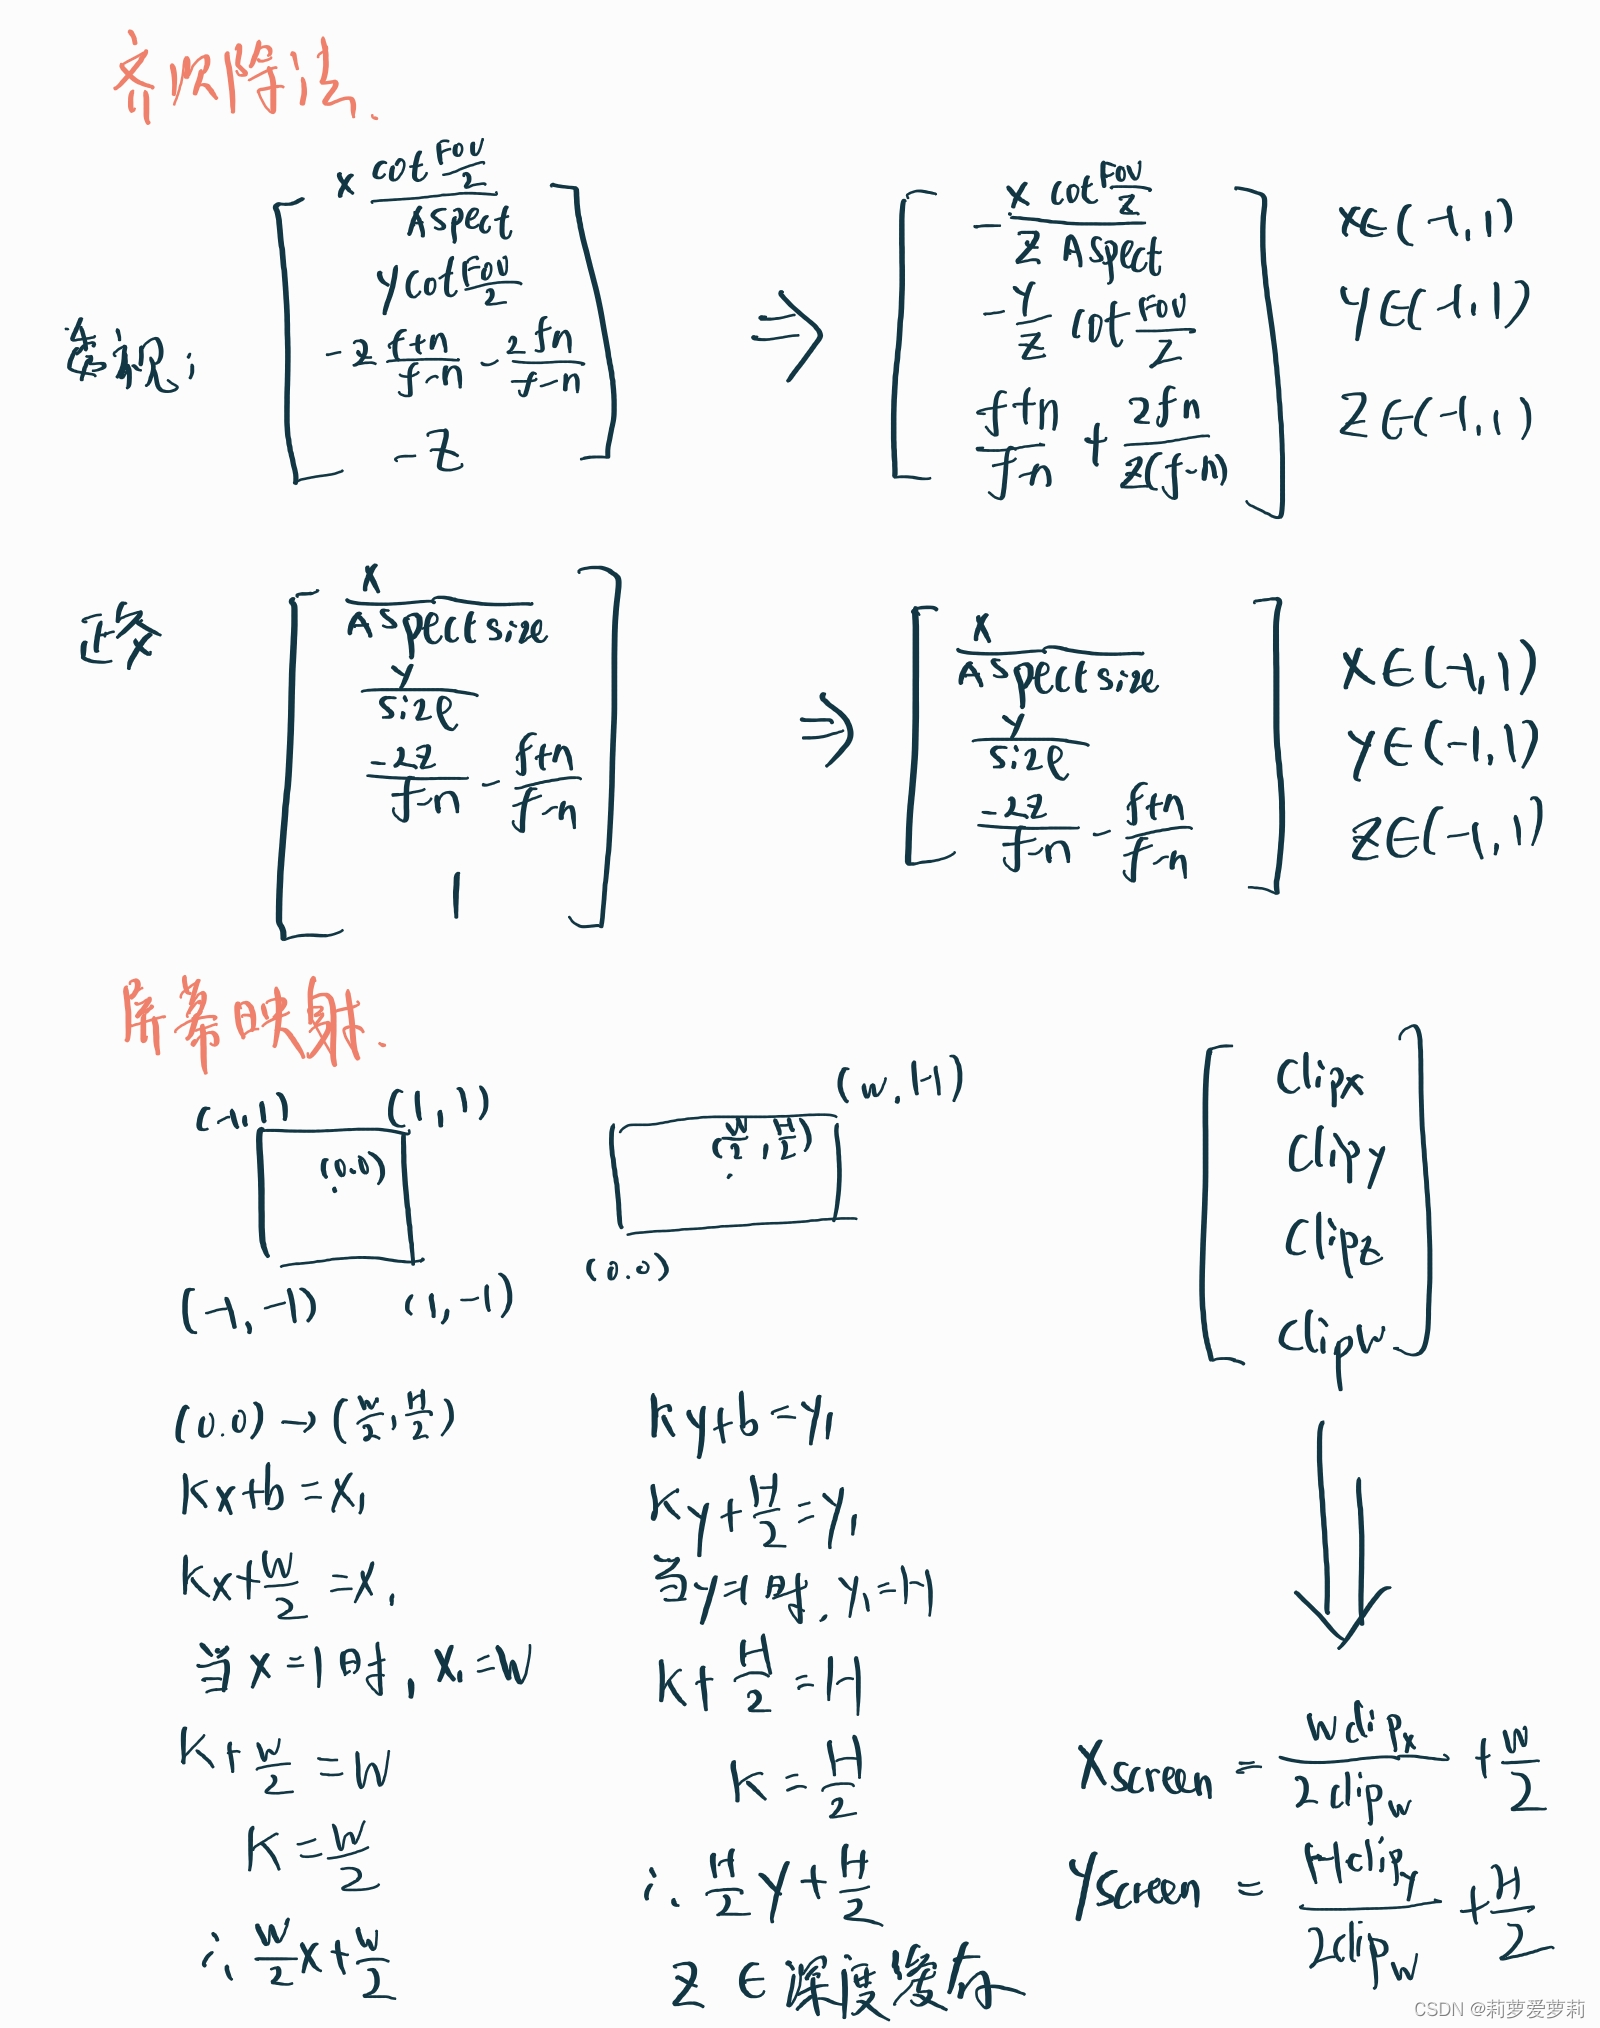 齐次除法.
透视:
[ x cot(FOV/2) / Aspect
y cot FOV/2
-z (f+n)/(f-n) - 2fn/(f-n)
-z ]
⇒
[ - x cot(FOV/2) / (z Aspect)
- y/z cot FOV/2
(f+n)/(f-n) + 2fn/(z(f-n)) ]
x∈(-1,1)
y∈(-1,1)
z∈(-1,1)
正交
[ x / Aspect size
y / size
-2z/(f-n) - (f+n)/(f-n)
1 ]
⇒
[ x / Aspect size
y / size
-2z/(f-n) - (f+n)/(f-n) ]
x∈(-1,1)
y∈(-1,1)
z∈(-1,1)
屏幕映射.
(-1,1) (1,1)
(0.0)
(-1,-1) (1,-1)
(w,H)
(w/2, H/2)
(0.0)
(0.0)→(w/2, H/2)
kx+b=x₁
kx+w/2=x₁
当x=1时, x₁=w
k+w/2=w
k=w/2
∴ w/2 x+w/2
ky+b=y₁
ky+H/2=y₁
当y=1时, y₁=H
k+H/2=H
k=H/2
∴ H/2 y+H/2
z∈深度缓存
[ clipx
clipy
clipz
clipw ]
⇓
xscreen = w clipx / 2 clipw + w/2
yscreen = H clipy / 2 clipw + H/2
CSDN @莉萝爱萝莉